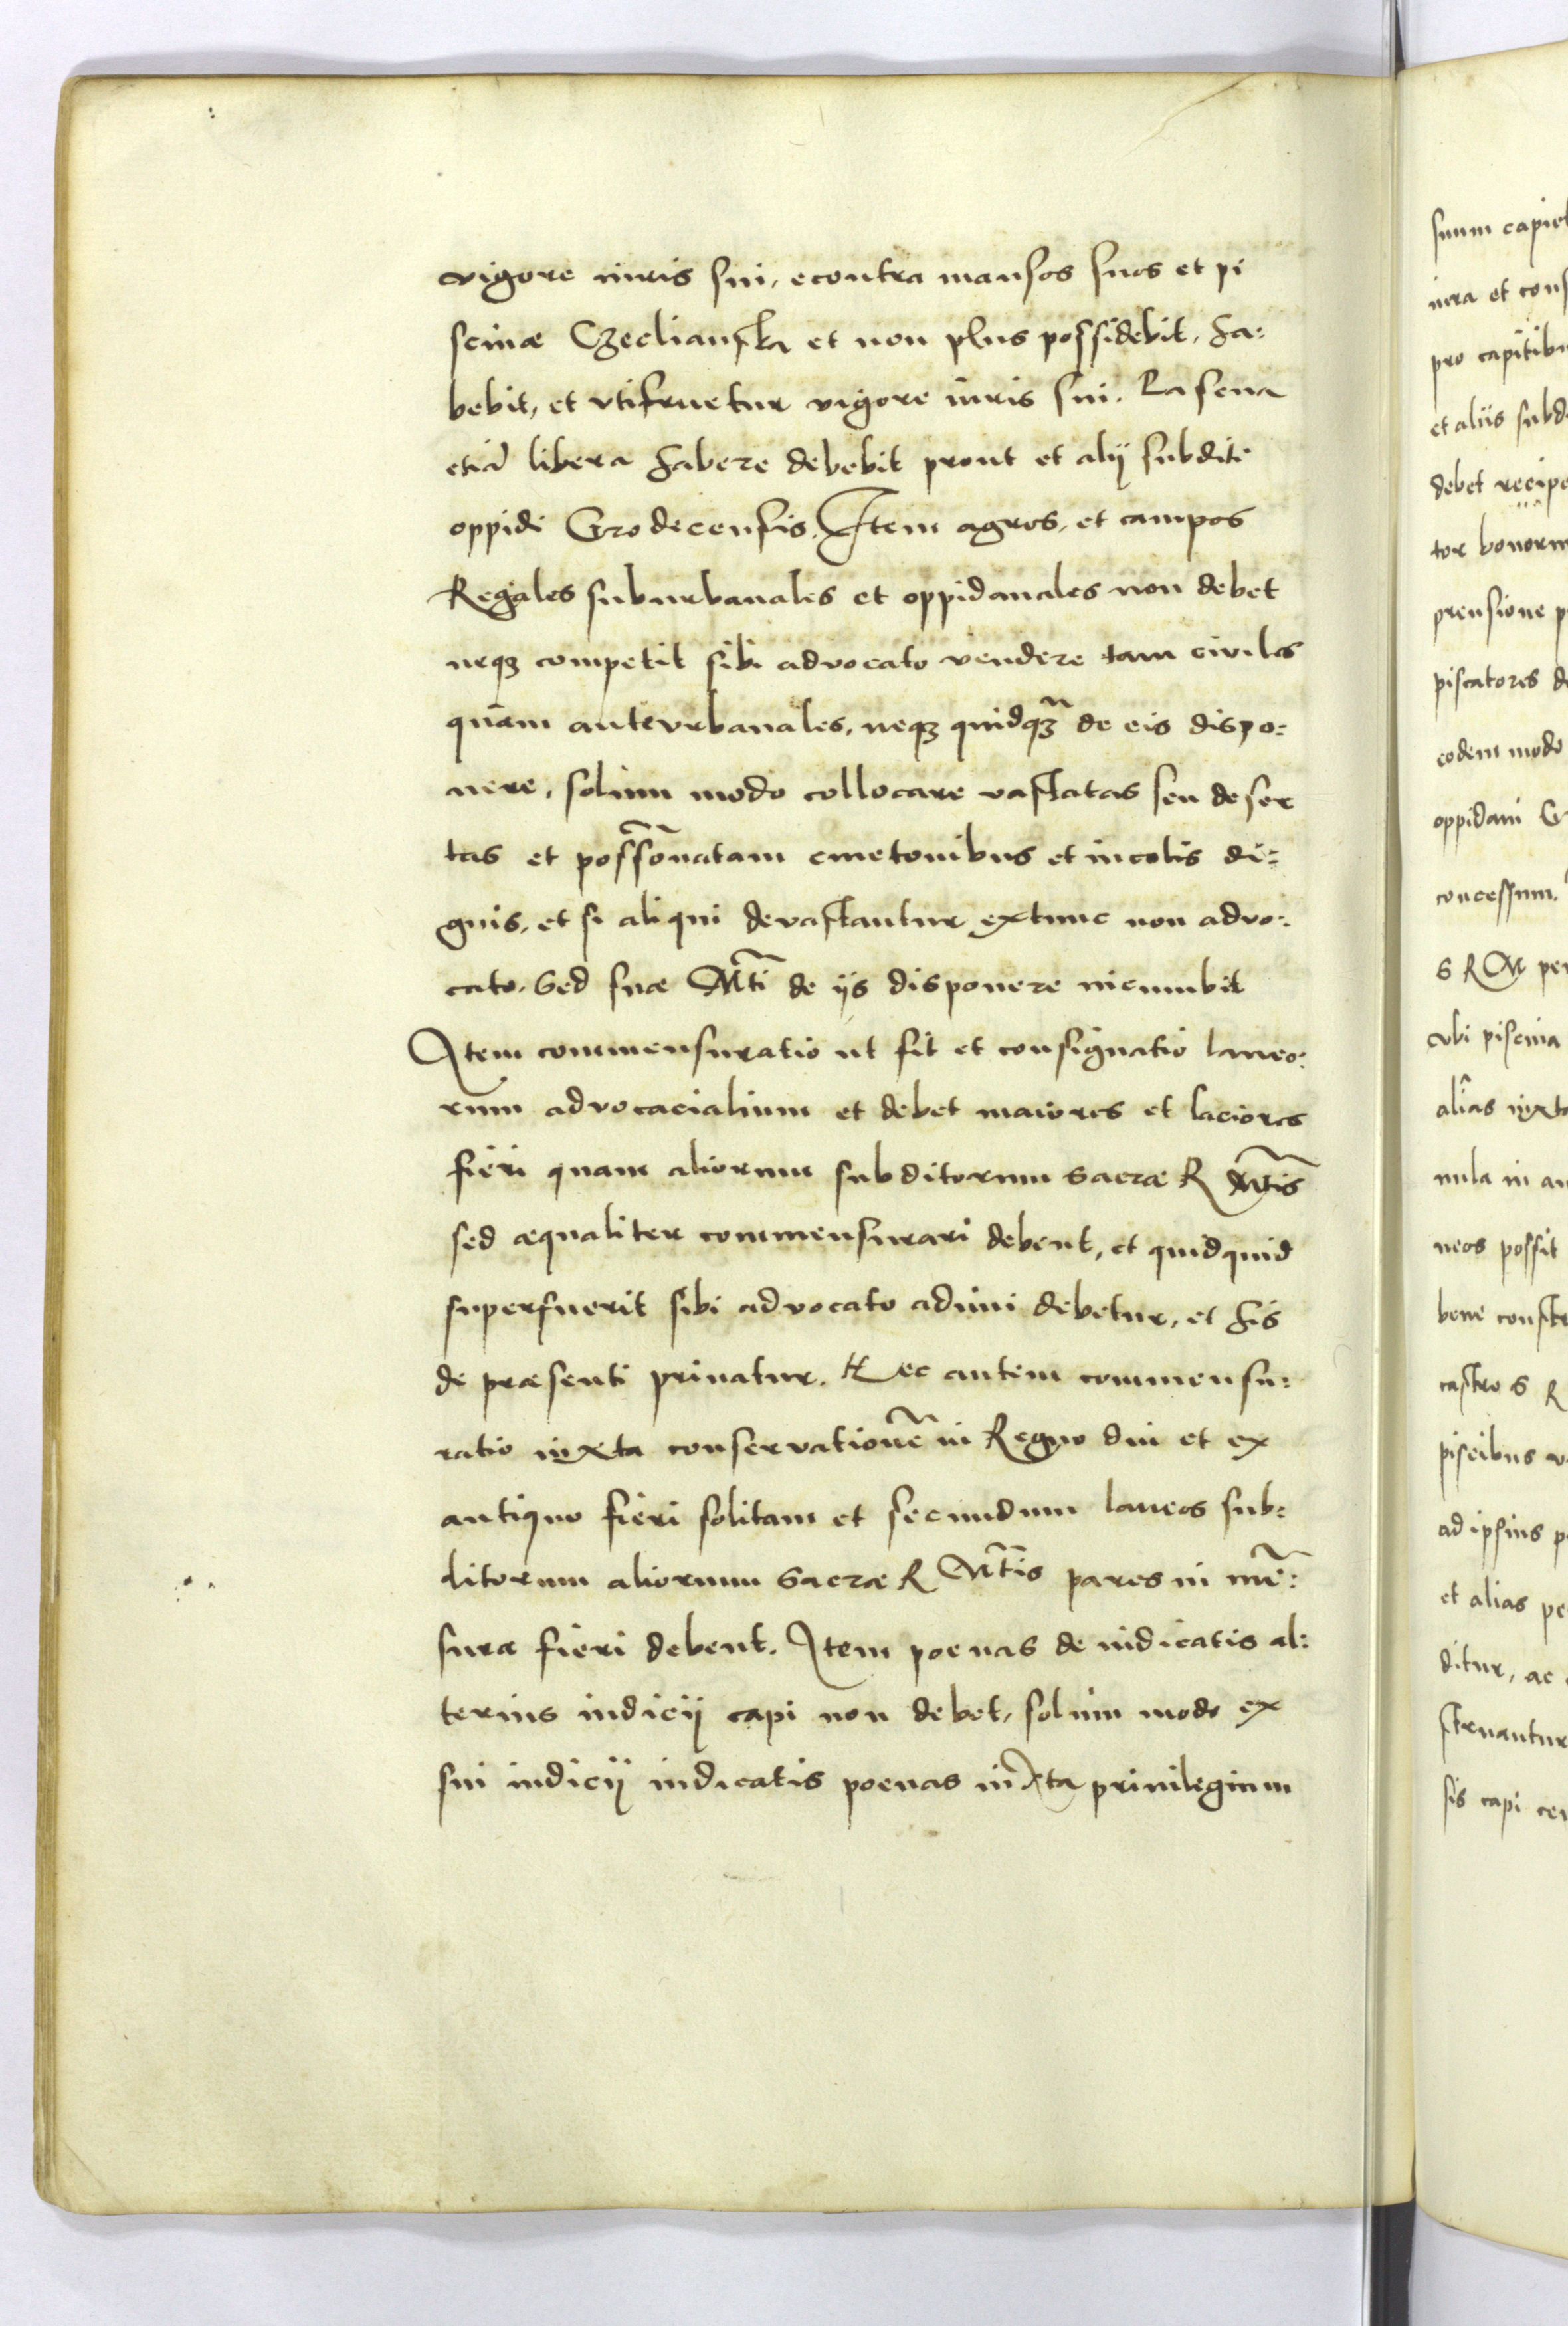 vigore iuris sui, econtra mansos suos et pi
scinæ Czeclianska et non plus possidebit, ha:
bebit, et vtifruetur vigore iuris sui. Lasena
etiā libera habere debebit prout et alij subditi
oppidi Grodecensis. Item agros, et campos
Regales suburbanales et oppidanales non debet
neqȝ competit sibi advocato vendere tam civiles
quam antevrbanales, neqȝ quidqȝ̄ de eis dispo:
nere, solum modo collocare vastatas seu deser
tas et possōnatam cmetonibus et incolis di:
gnis, et si aliqui devastantur extunc non advo:
cato, sed suæ Mti de ijs disponere incumbit
Item commensuratio ut fit et consignatio laneo:
rum advocacialium et debet maiores et laciores
fieri quam aliorum subditorum Sacræ R Mtis
sed æqualiter commensurari debent, et quidquid
superfuerit sibi advocato adimi debetur, et his
de præsenti priuatur. Hec autem commensu:
ratio iuxta conservationē in Regno diu et ex
antiquo fieri solitam et secundum laneos sub:
ditorum aliorum Sacræ R Mtis pares in mē:
sura fieri debent. Item poenas de iudicatis al:
terius iudicij capi non debet, solum modo ex
sui iudicij iudicatis poenas iuxta priuilegium
suum capiet
iura et cons
pro capitibu
et aliis subd
debet recipe
tor bonorum
prensione p
piscatores d
eodem modo
oppidani G
concessum.
S R M per
vbi piscina
alias iuxta
nula in an
neos possit
bene constr
castro S R
piscibus v
ad ipsius p
et alias pe
ditur, ac
struantur
sis capi cen